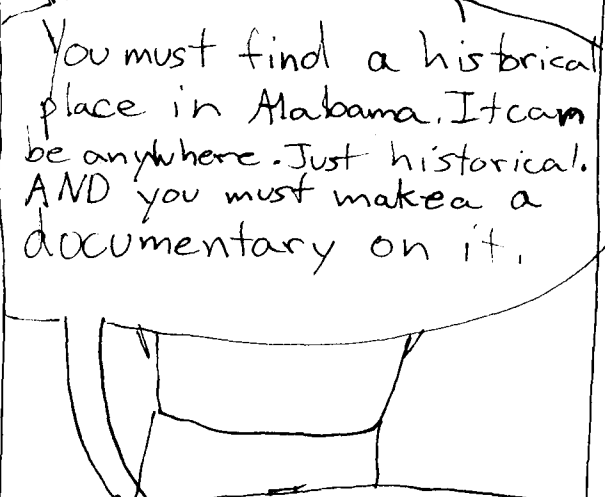 You must find a historical
place in Alabama. It can
be anywhere. Just historical.
AND you must makea a
documentary on it.